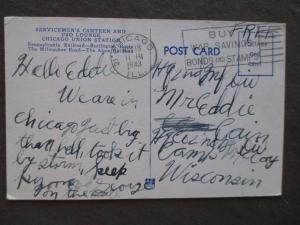 SERVICEMEN'S CANTEEN AND
USO LOUNGE
CHICAGO UNION STATION
Pennsylvania Railroad—Burlington Route
The Milwaukee Road—The Alton Railroad
CHICAGO
11 PM
1943
ILL
BUY
WAR SAVINGS
BONDS AND STAMPS
FREE
POST CARD
Hello Eddie
We are in
chicago just big
that hell, took it
by storm, keep
on the
Mr Eddie
Cain
Camp Mc Coy
Wisconsin